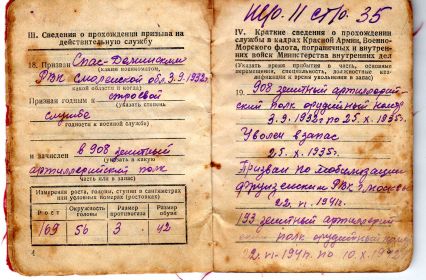 пер. 11 стр. 35
III. Сведения о прохождении призыва на
действительную службу
18. Призван Спас-Деменским
(каким военкоматом,
РВК Смоленской обл. 3.9.1932г.
какой области и когда)
Призван годным к строевой
(указать степень
службе
годности к военной службе)
и зачислен в 908 зенитный
(указать в какую
артиллерийский полк
часть или в запас)
Измерения роста, головы, ступни в сантиметрах
или условных номерах (ростовках)
Рост
Окружность головы
Размер противогаза
Размер обуви
169 56 3 42
4
IV. Краткие сведения о прохождении
службы в кадрах Красной Армии, Военно-
Морского флота, пограничных и внутрен-
них войск Министерства внутренних дел
(Указать время прибытия в часть, основные
перемещения, специальность, должностные
и время увольнения в запас)
19. 908 зенитный артиллерий-
ский полк орудийный номер
3.9.1932г по 25.X.1935г.
Уволен в запас
25.X.1935г.
Призван по мобилизации
Фрунзенским РВК г. Москвы
22.VI.1941г.
193 зенитный артиллерий-
ский полк орудийный
22.VI.1941г по 10.X.